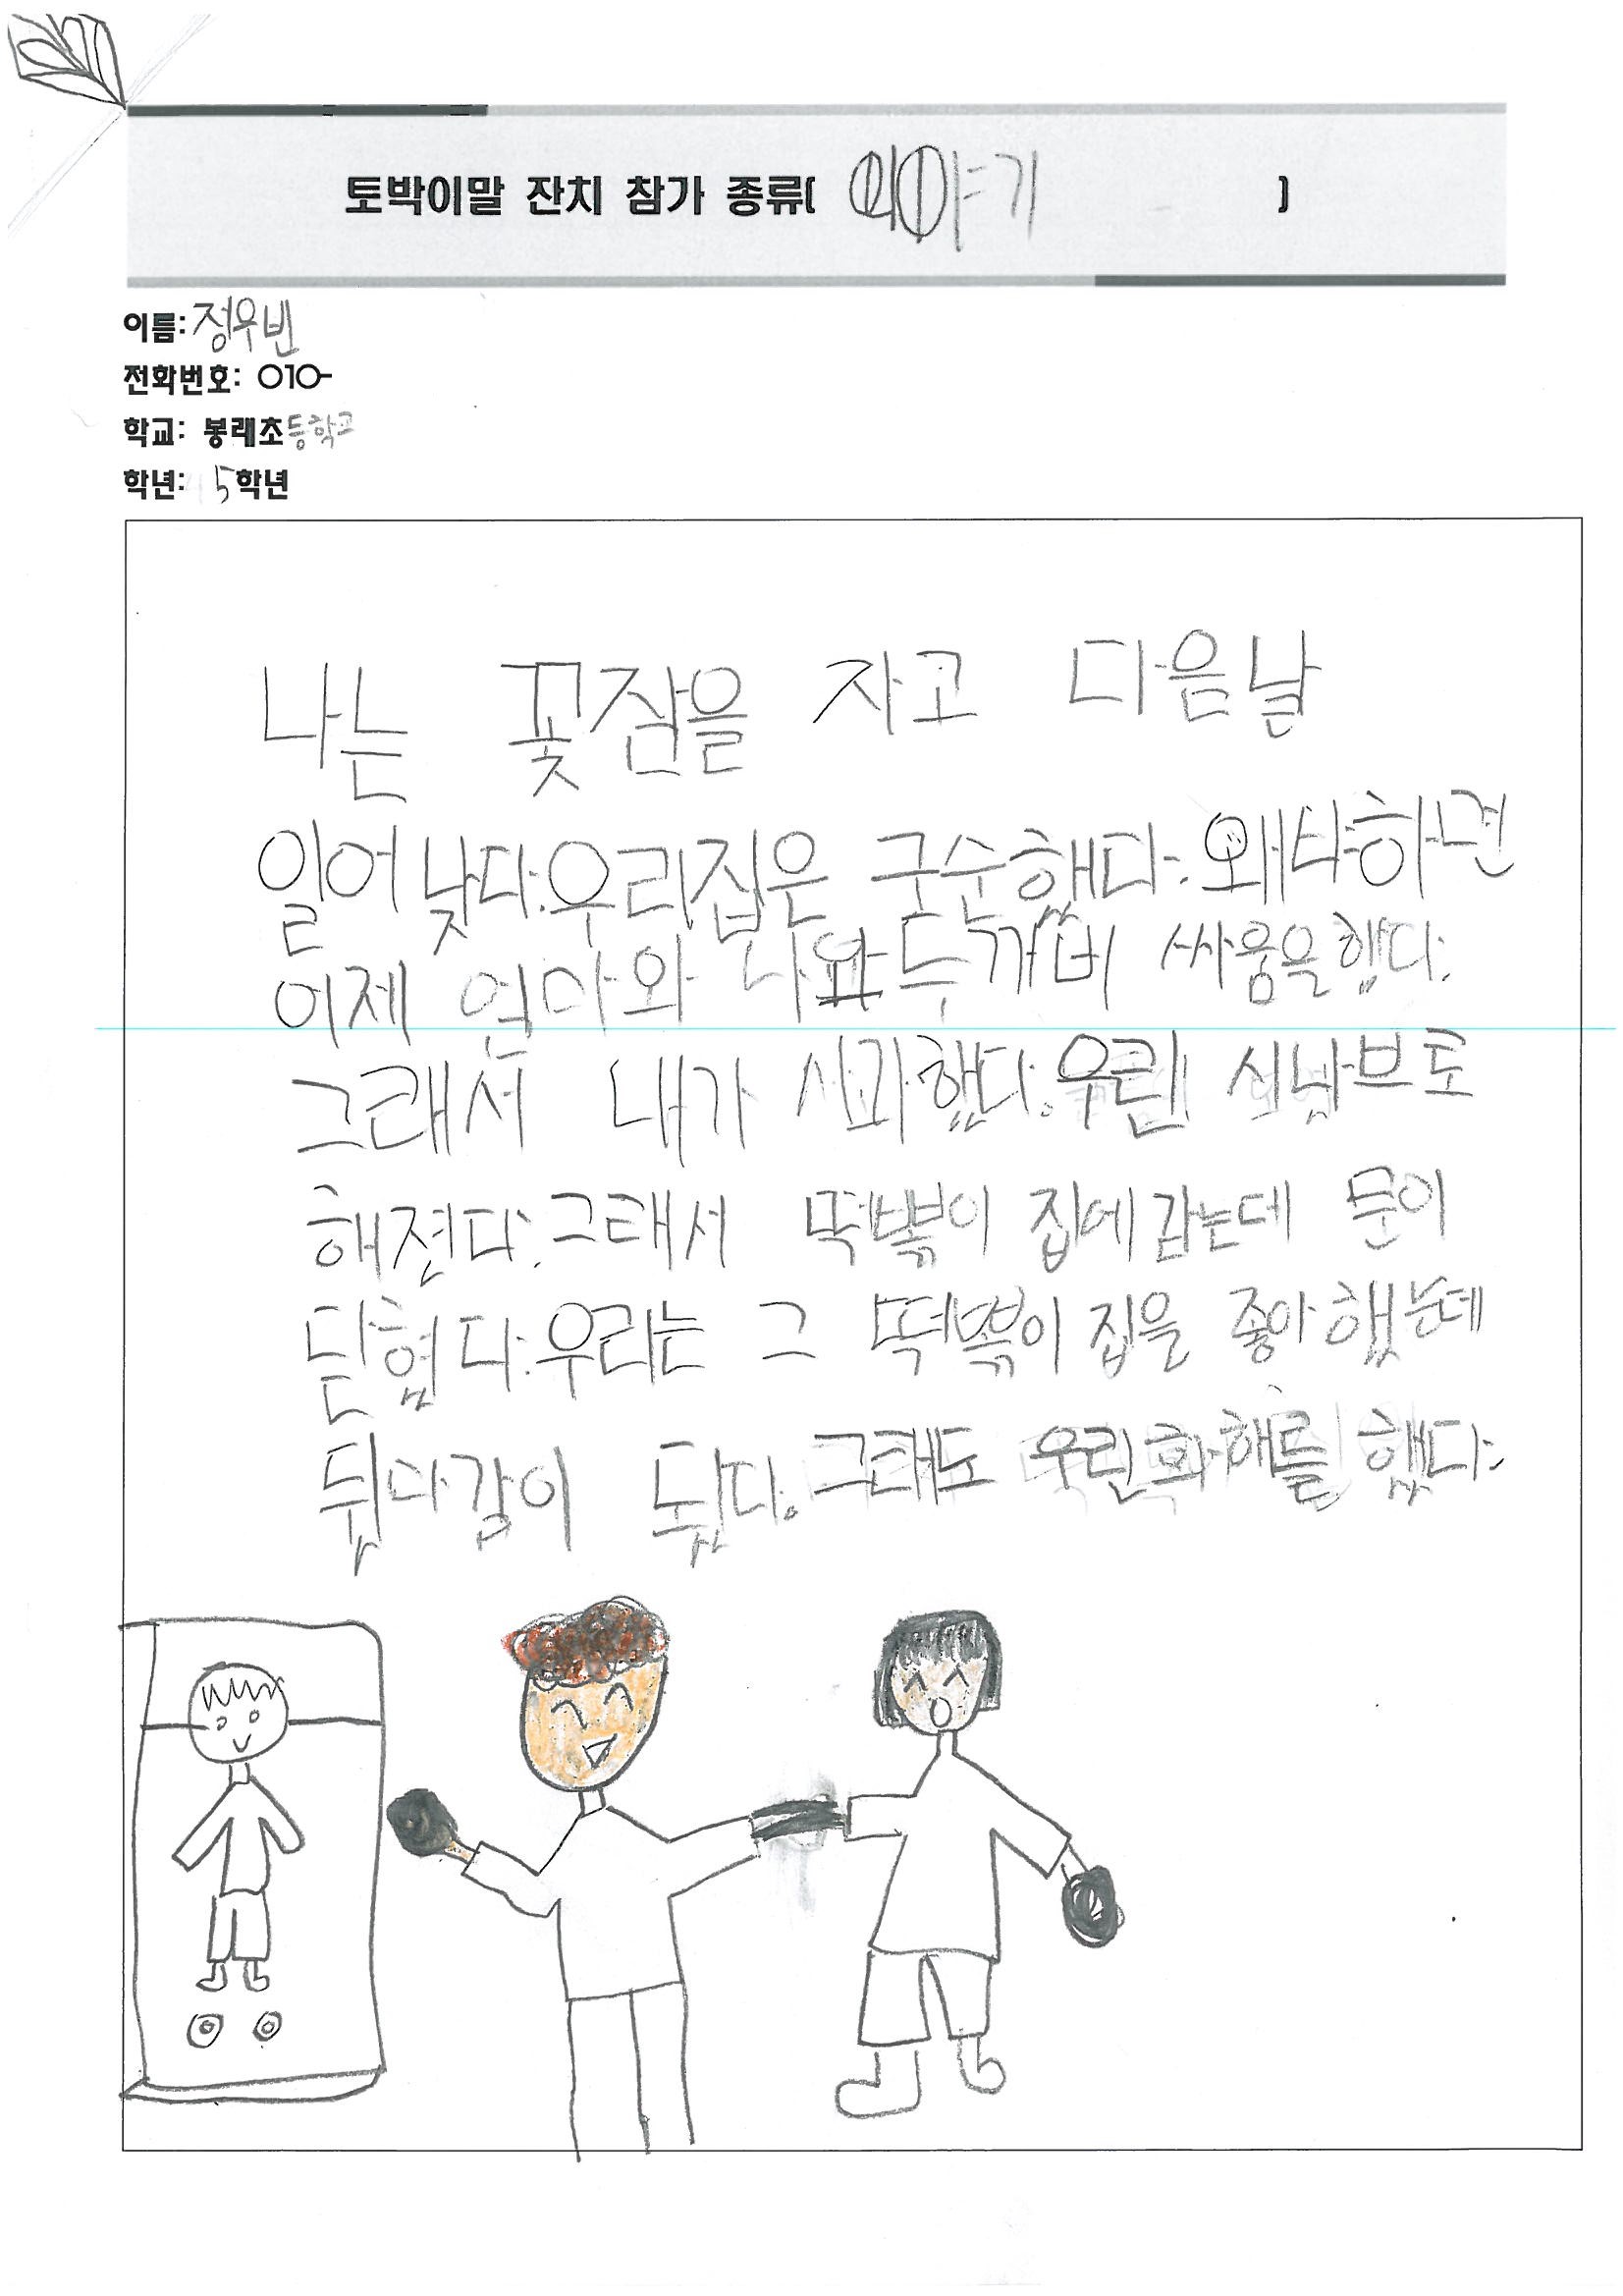 토박이말 잔치 참가 종류( 이야기 )
이름: 정우빈
전화번호: 010-
학교: 봉래초등학교
학년: 5학년
나는 꽃잠을 자고 다음날
일어낮다. 우리집은 구순했다. 왜냐하면
어제 엄마와 나 두꺼비 싸움을 했다.
그래서 내가 사과했다. 우린
해졌다. 그래서 떡볶이 집에 갔는데 문이
닫혔다. 우리는 그 떡볶이 집을 좋아했는데
뒸다감이 됬다. 그래도 우린 화해를 했다.